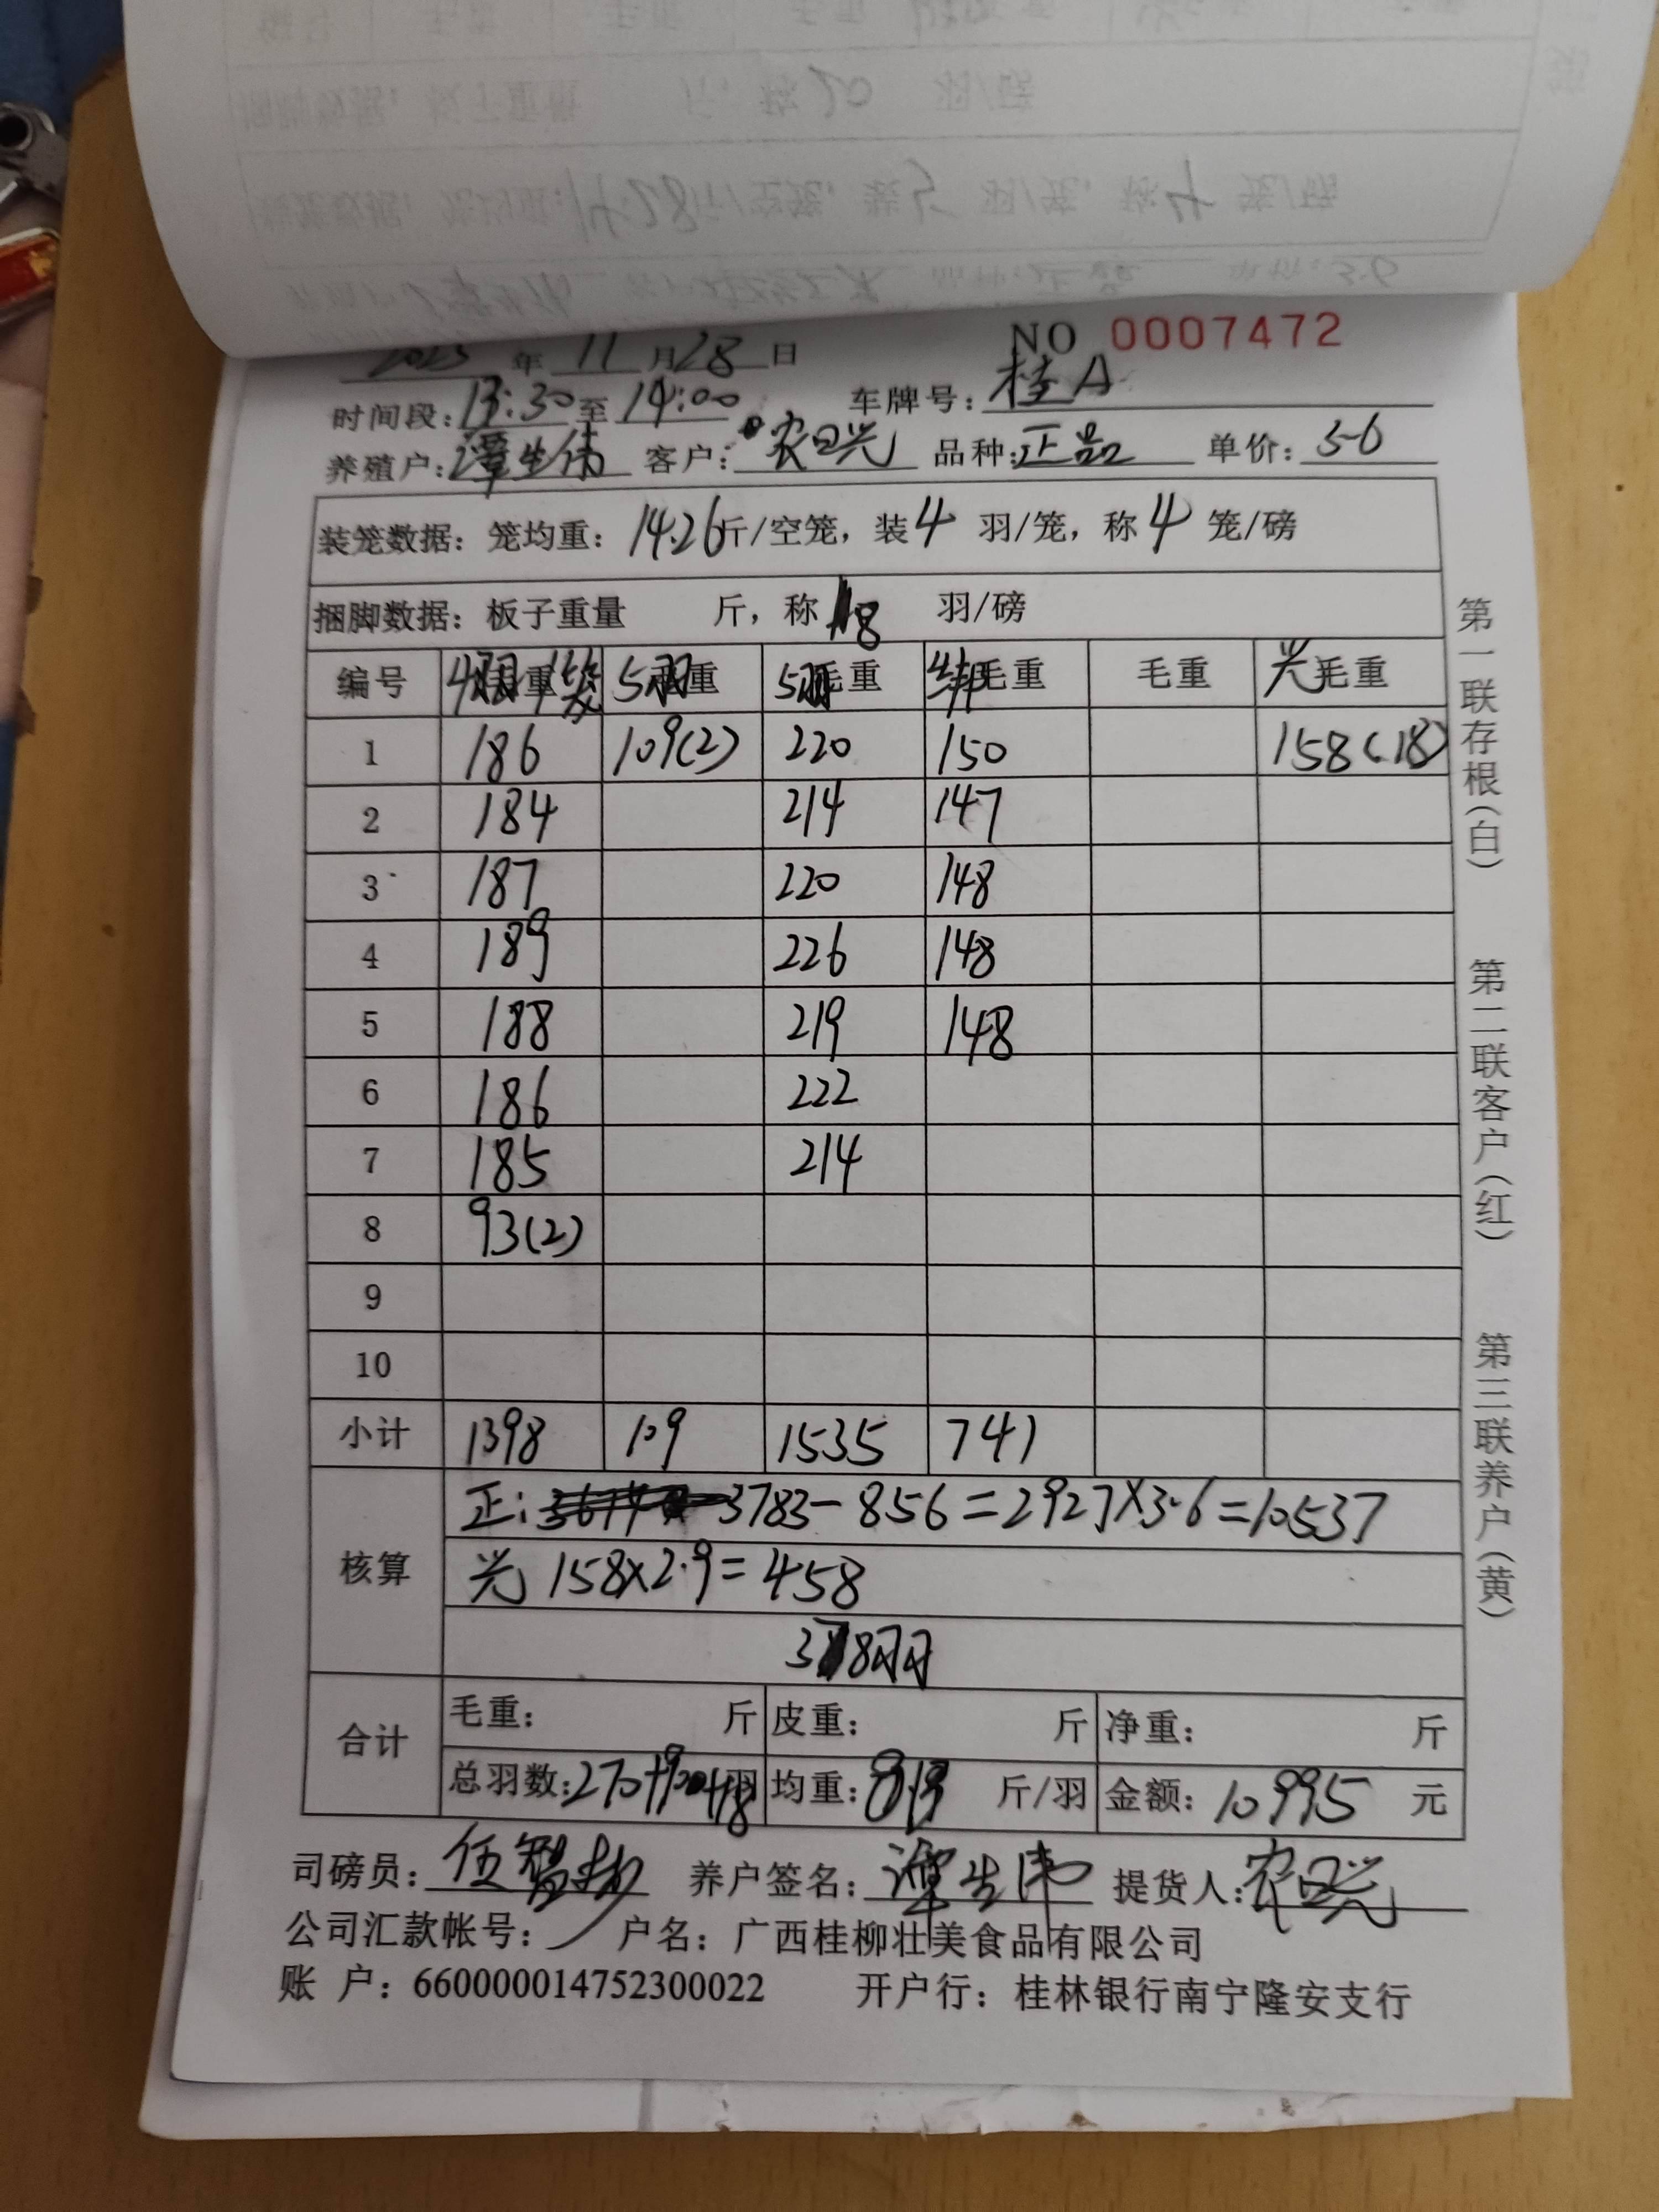 2025年 11月28日
NO 0007472
时间段:13:30至14:00 车牌号:桂A
养殖户:潭生伟 客户:农曰兴 品种:正品 单价:3.6
装笼数据:笼均重:14.26斤/空笼,装4 羽/笼,称4 笼/磅
捆脚数据:板子重量 斤,称18 羽/磅
编号 4羽毛重 5羽毛重 5羽毛重 毛重 毛重 光毛重
1 186 109(2) 220 150 158(18)
2 184 214 147
3 187 220 148
4 189 226 148
5 188 219 148
6 186 222
7 185 214
8 93(2)
9
10
小计 1398 109 1535 741
核算
正: 3783-856=2927×3.6=10537
光 158×2.9=458
378羽
合计
毛重: 斤 皮重: 斤 净重: 斤
总羽数:270+90+18羽 均重: 斤/羽 金额:10995 元
司磅员: 养户签名:潭生伟 提货人:农曰兴
公司汇款帐号: 户名:广西桂柳壮美食品有限公司
账 户:660000014752300022 开户行:桂林银行南宁隆安支行
第一联存根(白) 第二联客户(红) 第三联养户(黄)